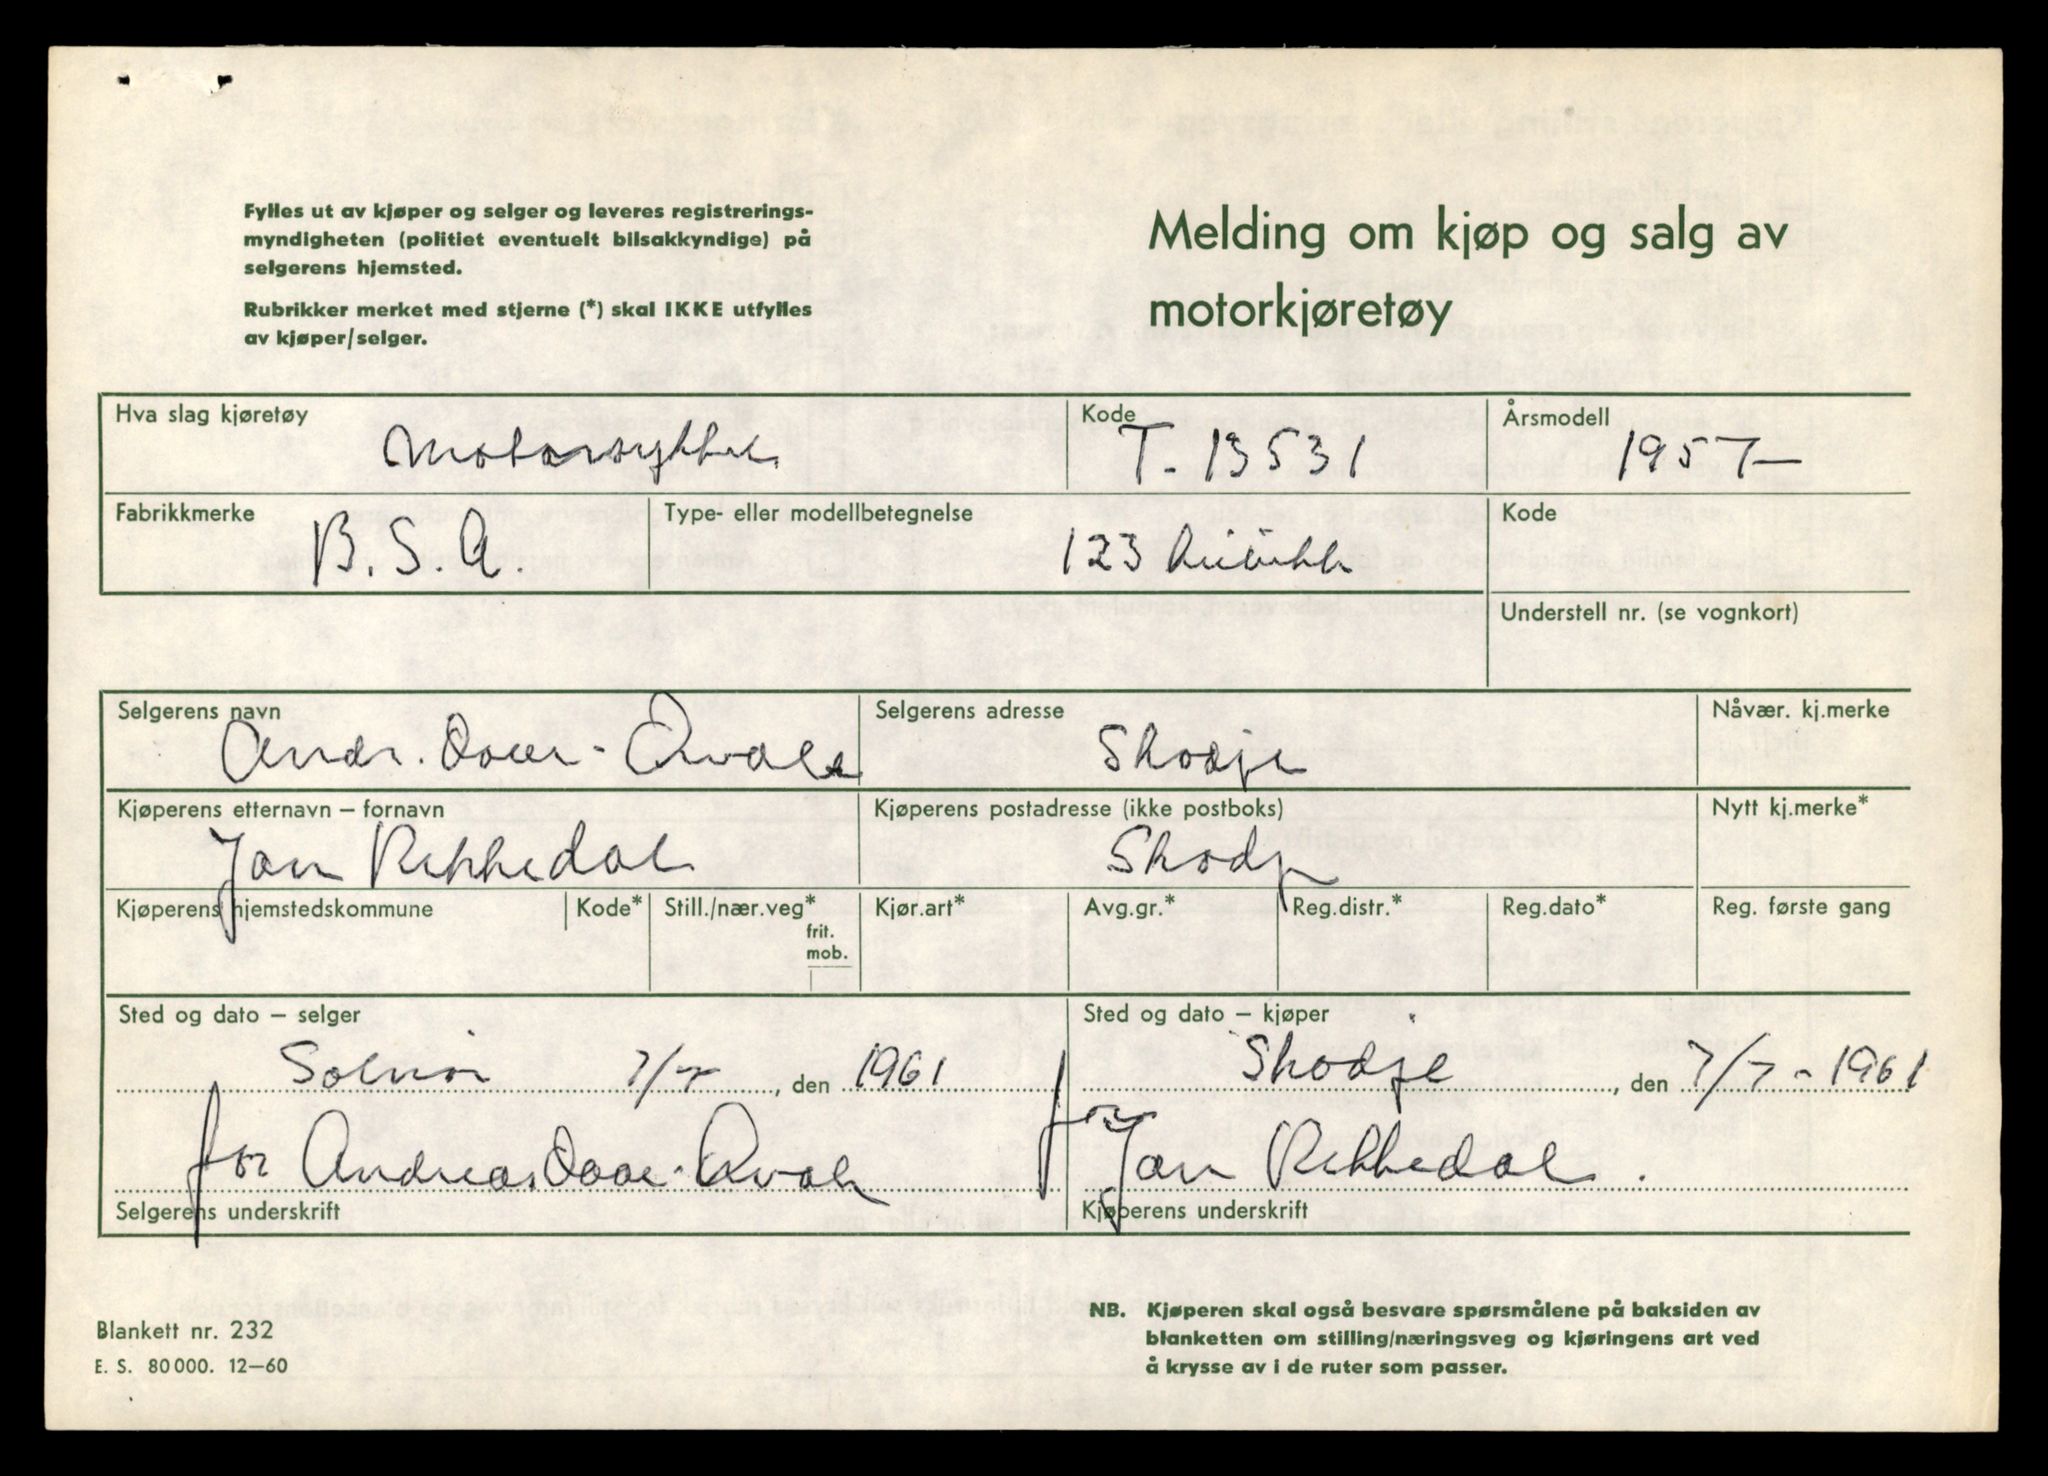 Fylles ut av kjøper og selger og leveres registrerings-
myndigheten (politiet eventuelt bilsakkyndige) på
selgerens hjemsted.
Rubrikker merket med stjerne (*) skal IKKE utfylles
av kjøper/selger.
Melding om kjøp og salg av
motorkjøretøy
Hva slag kjøretøy
Motorsykkel
Kode
T. 13531
Årsmodell
1957
Fabrikkmerke
B.S.A.
Type- eller modellbetegnelse
123
Kode
Understell nr. (se vognkort)
Selgerens navn
Andr. Daae-Qvale
Selgerens adresse
Skodje
Nåvær. kj.merke
Kjøperens etternavn – fornavn
Jan Rekkedal
Kjøperens postadresse (ikke postboks)
Skodje
Nytt kj.merke*
Kjøperens hjemstedskommune
Kode*
Still./nær.veg*
frit.
mob.
Kjør.art*
Avg.gr.*
Reg.distr.*
Reg.dato*
Reg. første gang
Sted og dato – selger
Solnør 7/7, den 1961
Sted og dato – kjøper
Skodje, den 7/7-1961
for Andreas Daae-Qvale
Selgerens underskrift
for Jan Rekkedal.
Kjøperens underskrift
Blankett nr. 232
E. S. 80000. 12–60
NB. Kjøperen skal også besvare spørsmålene på baksiden av
blanketten om stilling/næringsveg og kjøringens art ved
å krysse av i de ruter som passer.